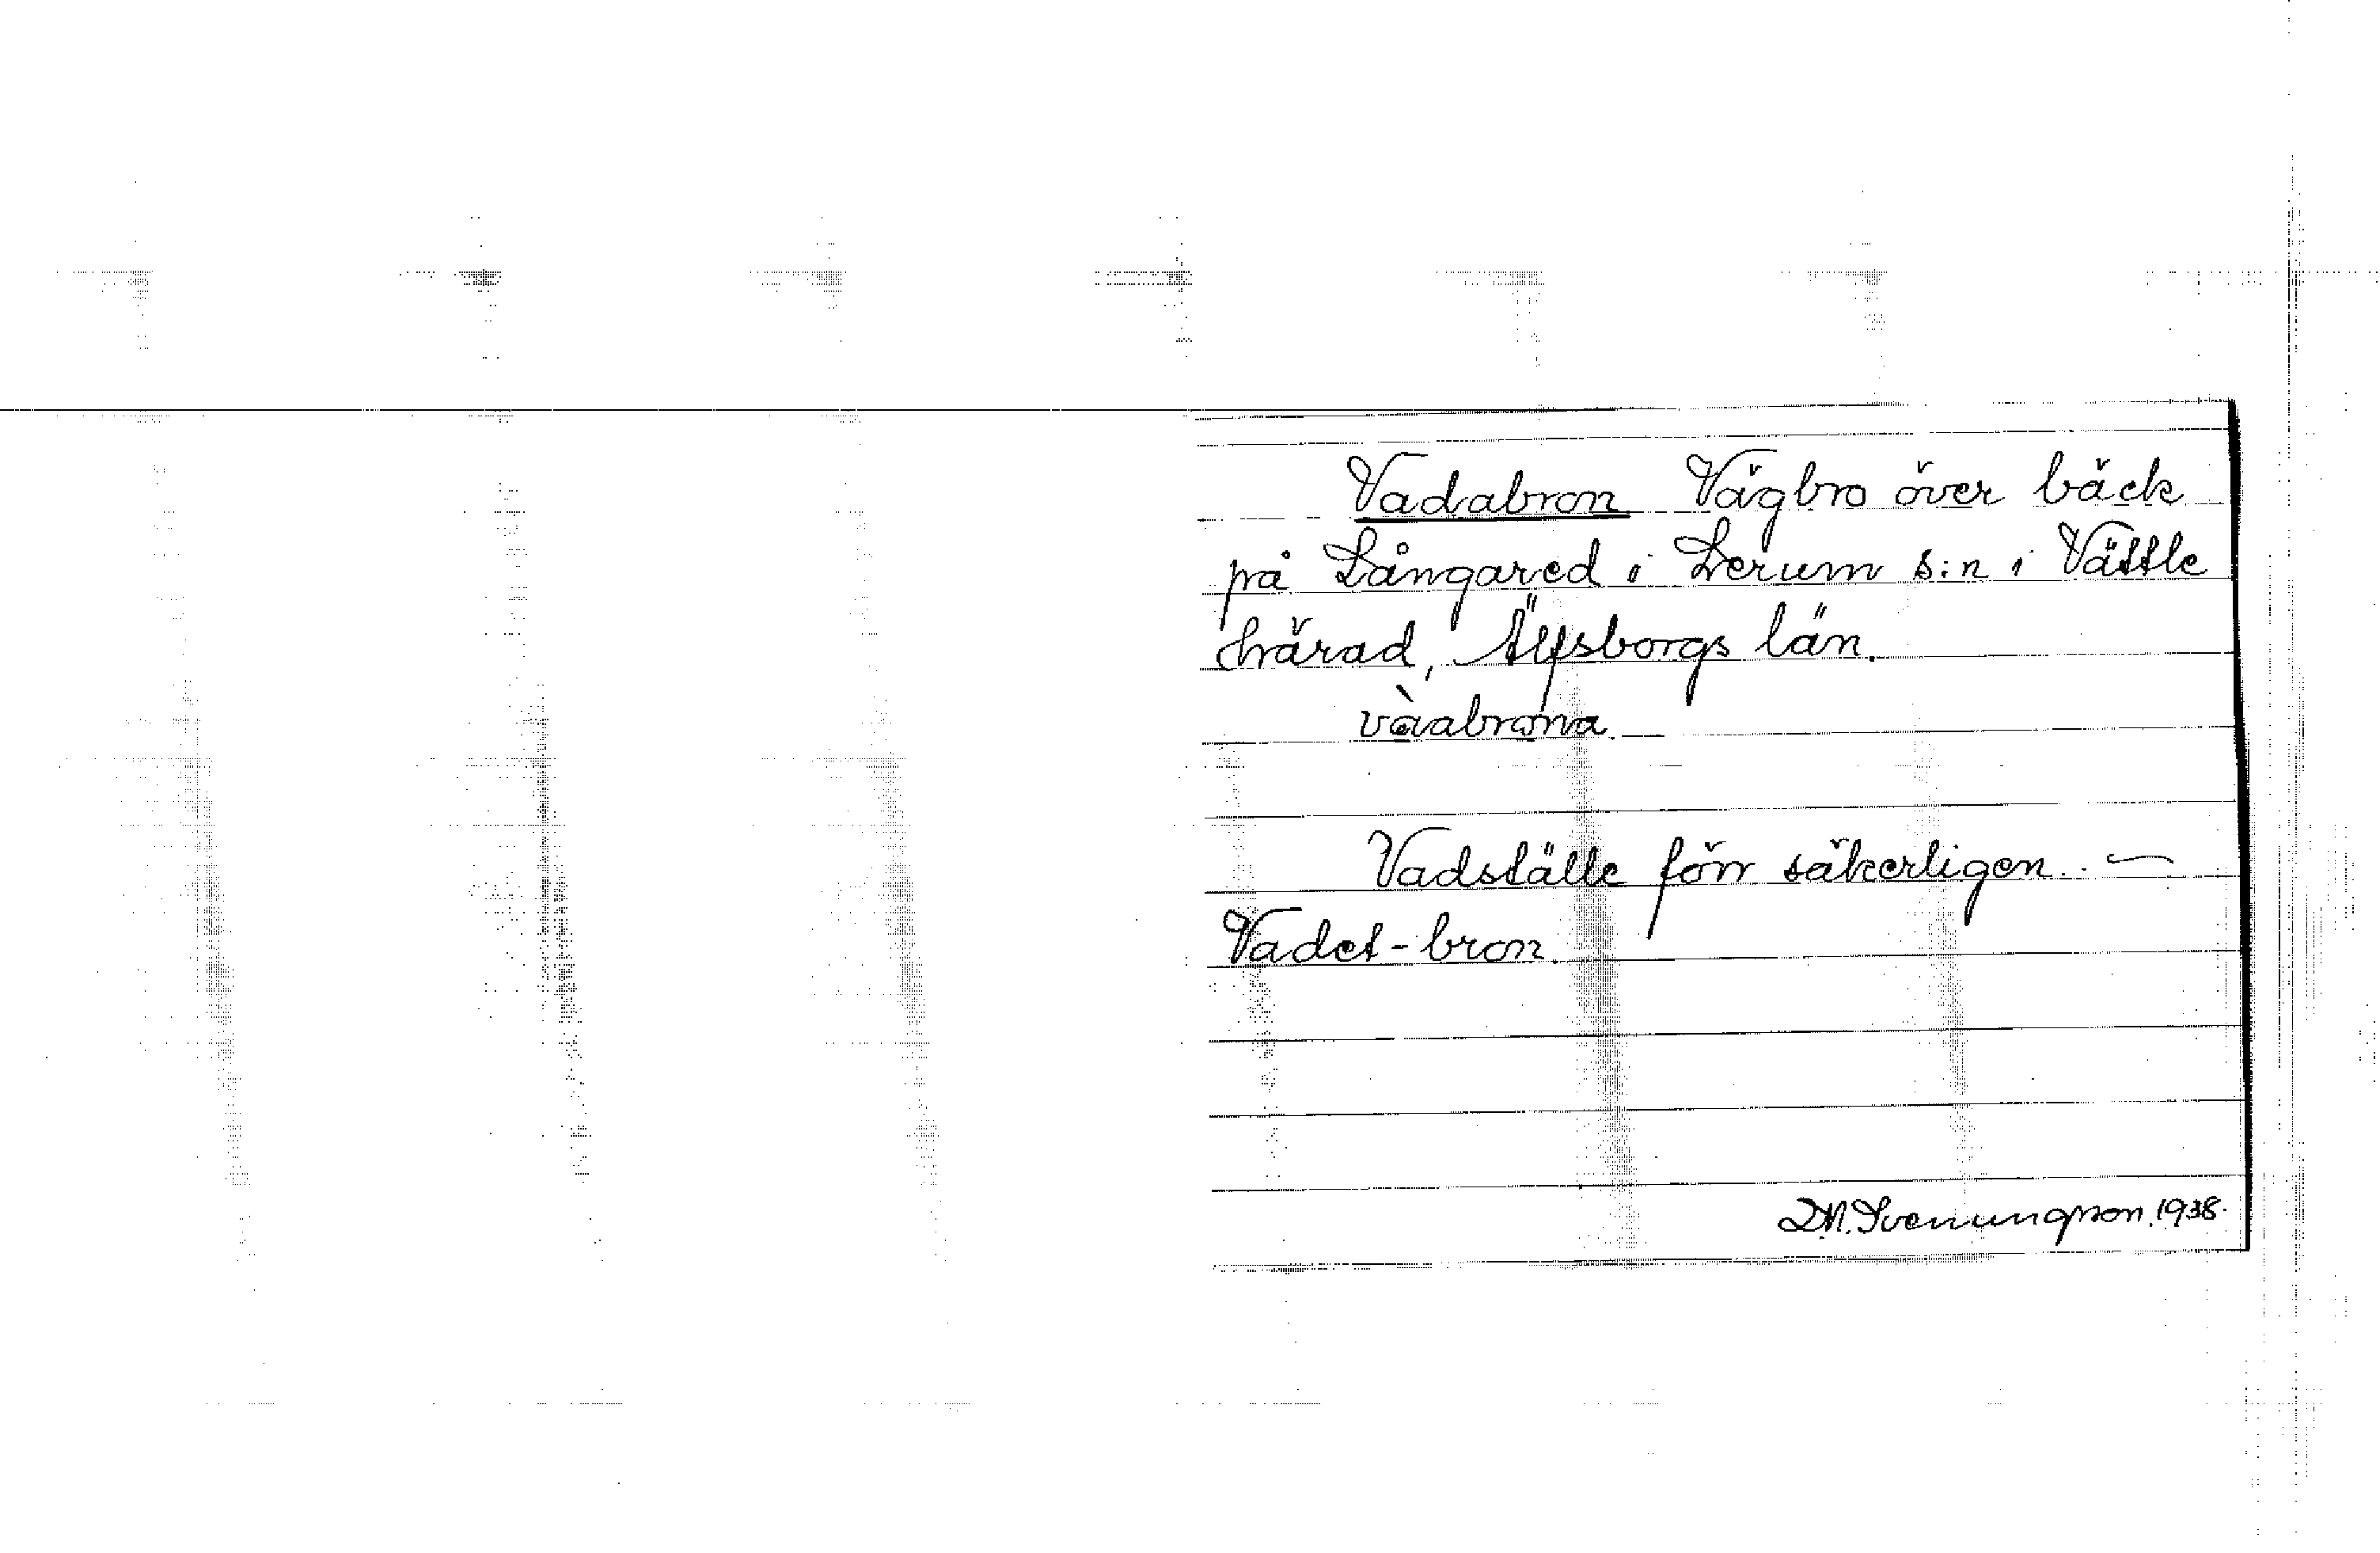 Vadabron Vägbro över bäck
på Långared i Lerum s:n i Vättle
härad, Älfsborgs län.
vàabrona.
Vadställe förr säkerligen. —
Vadet-bron.
D.N. Svenungsson. 1938.